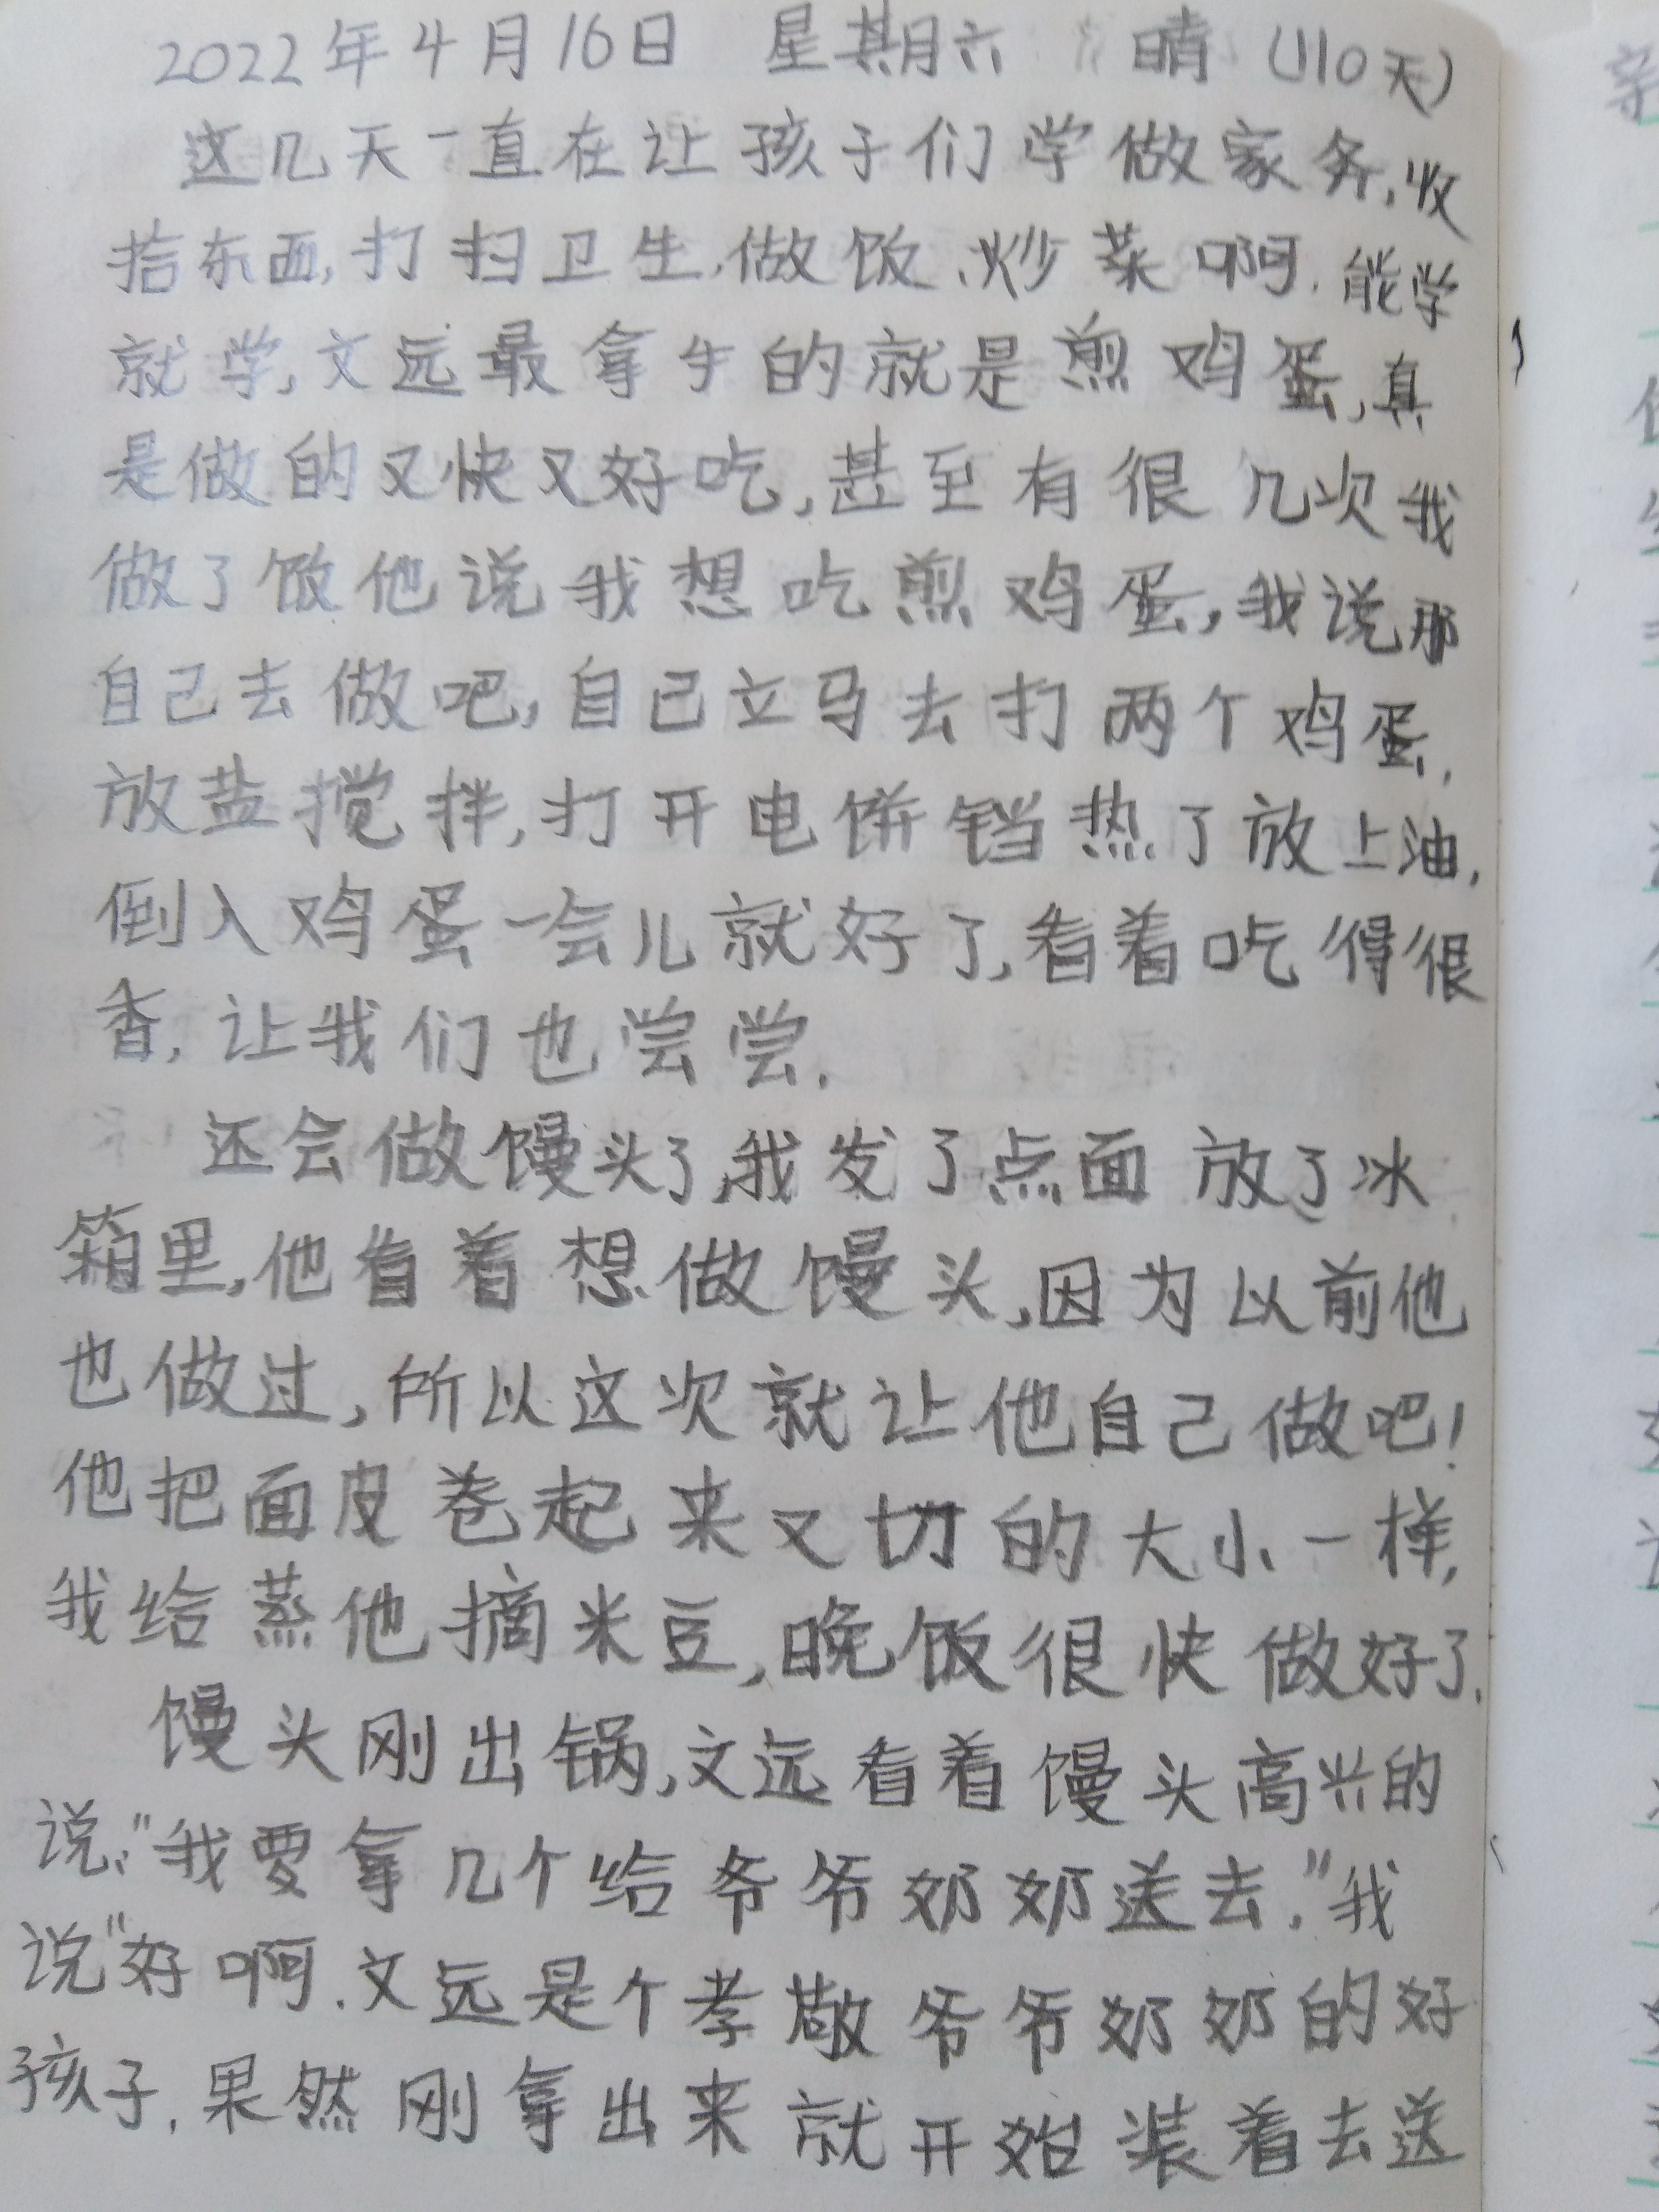 2022年4月16日 星期六 晴 (110天)
这几天一直在让孩子们学做家务,收
拾东西,打扫卫生,做饭、炒菜啊.能学
就学,文远最拿手的就是煎鸡蛋,真
是做的又快又好吃,甚至有很几次我
做了饭他说我想吃煎鸡蛋,我说那
自己去做吧,自己立马去打两个鸡蛋,
放盐搅拌,打开电饼铛热了放上油,
倒入鸡蛋一会儿就好了,看着吃得很
香,让我们也尝尝.
还会做馒头了,我发了点面放了冰
箱里,他看着想做馒头,因为以前他
也做过,所以这次就让他自己做吧!
他把面皮卷起来又切的大小一样,
我给蒸他摘米豆,晚饭很快做好了.
馒头刚出锅,文远看着馒头高兴的
说:"我要拿几个给爷爷奶奶送去."我
说"好啊.文远是个孝敬爷爷奶奶的好
孩子.果然刚拿出来就开始装着去送